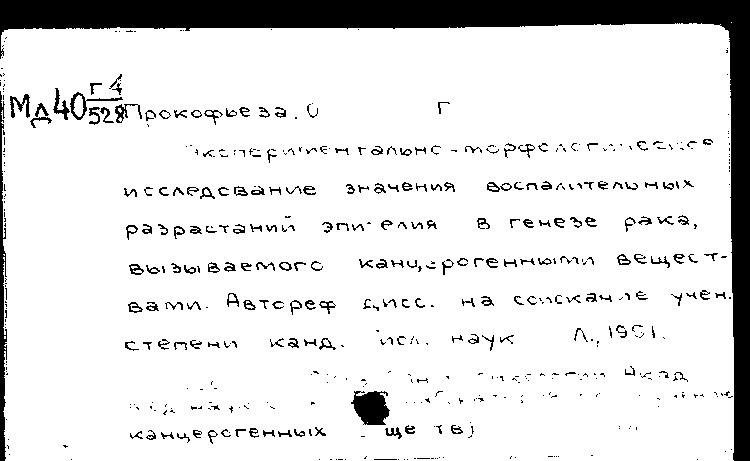 Мд40 г4/528
Прокофьева. О Г
Экспериментально-морфологическое
исследование значения воспалительных
разрастаний эпителия в генезе рака,
вызываемого канцерогенными вещест-
вами. Автореф дисс. на соискание учен.
степени канд. наук Л., 1951.
онкологии Акад
канцерогенных